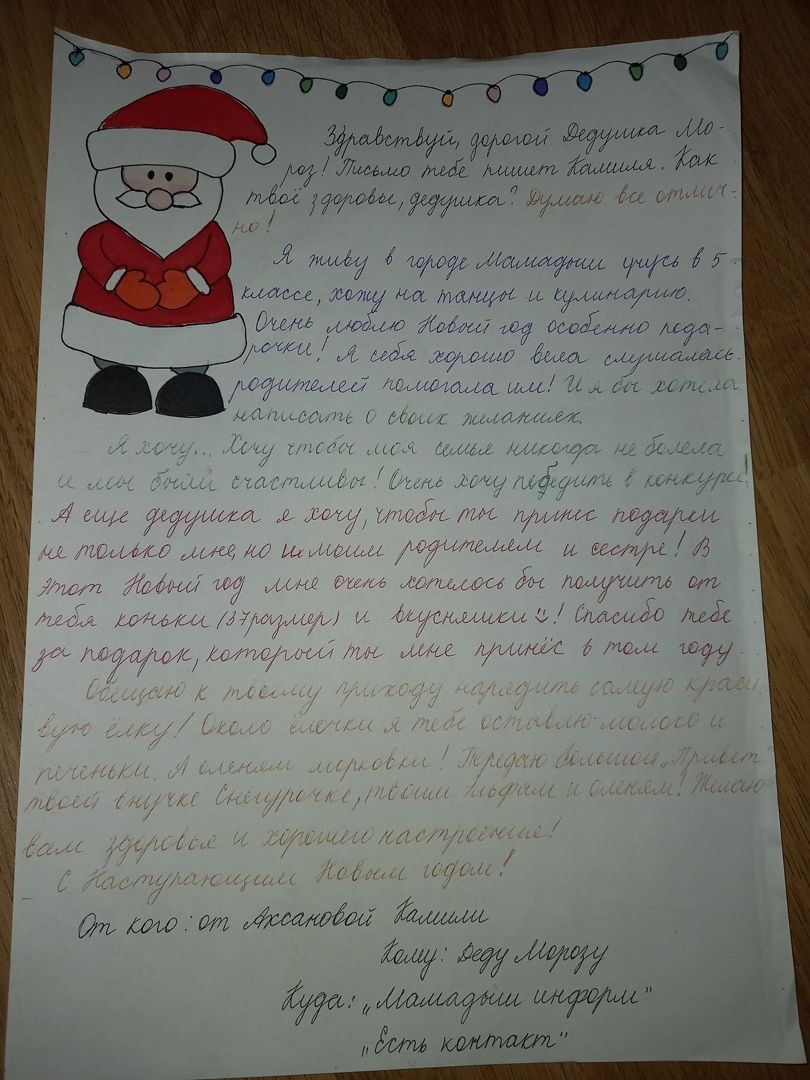 Здравствуй, дорогой Дедушка Мо-
роз! Письмо тебе пишет Камиля. Как
твоё здоровье, дедушка? Думаю все отлич-
но!
Я живу в городе Мамадыш учусь в 5
классе, хожу на танцы и кулинарию.
Очень люблю Новый год особенно пода-
рочки! Я себя хорошо вела слушалась
родителей помогала им! И я бы хотела
написать о своих желаниях.
Я хочу... Хочу чтобы моя семья никогда не болела
и мы были счастливы! Очень хочу победить в конкурсе!
А еще дедушка я хочу, чтобы ты принес подарки
не только мне, но и моим родителям и сестре! В
этот Новый год мне очень хотелось бы получить от
тебя коньки (37размер) и вкусняшки☺! Спасибо тебе
за подарок, который ты мне принёс в том году.
Обещаю к твоему приходу нарядить самую краси
вую ёлку! Около ёлочки я тебе оставлю молоко и
печеньки. А оленям морковки! Передаю большой „Привет"
твоей внучке Снегурочке, твоим эльфам и оленям! Желаю
вам здоровья и хорошего настроения!
С Наступающим Новым годом!
От кого: от Аксановой Камили
Кому: Деду Морозу
Куда: „Мамадыш информ"
„Есть контакт"